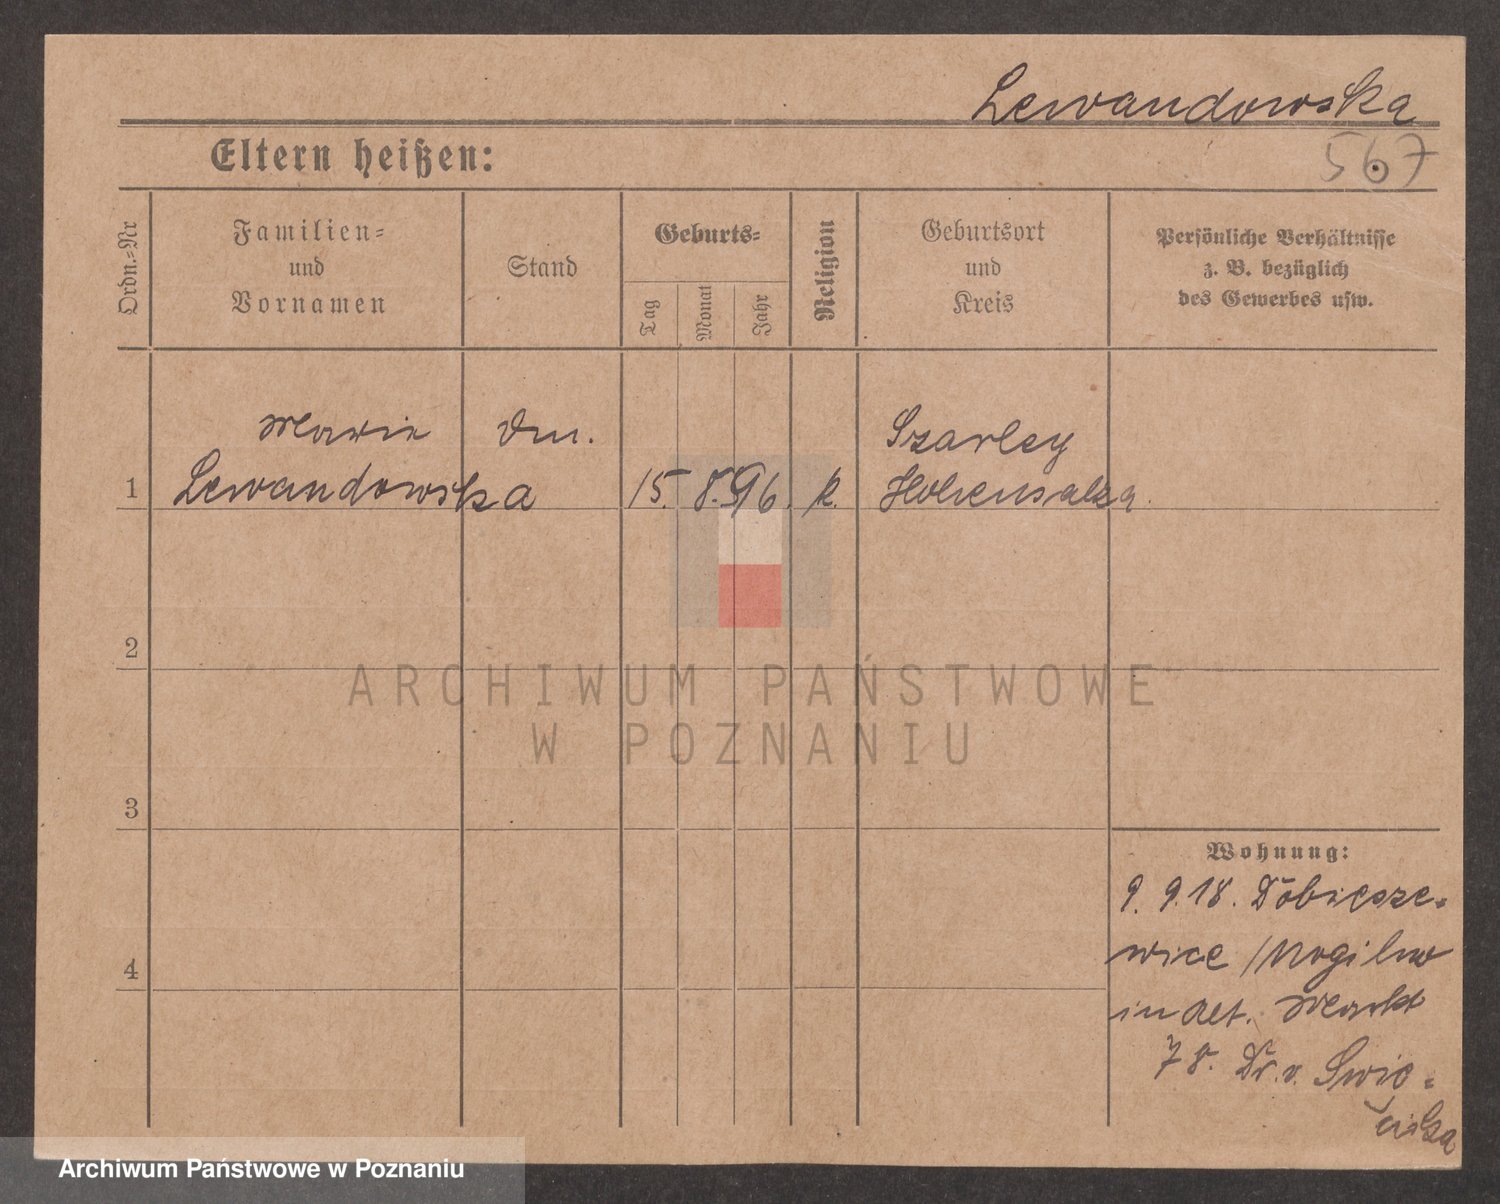 Lewandowska
Eltern heißen:
567
Ordn.-Nr
Familien-
und
Vornamen
Stand
Geburts-
Tag
Monat
Jahr
Religion
Geburtsort
und
Kreis
Persönliche Verhältnisse
z. B. bezüglich
des Gewerbes usw.
1
Marie
Lewandowska
Dm.
15. 8. 96.
k.
Szarley
Hohensalza.
2
3
4
Wohnung:
9. 9. 18.
wice / Mogilno
in Alt. Markt
78. Dr. v.
ARCHIWUM PAŃSTWOWE
W POZNANIU
Archiwum Państwowe w Poznaniu